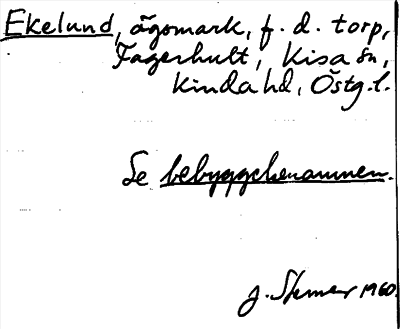 Ekelund, ägomark, f. d. torp,
Fagerhult, Kisa sn,
Kinda hd, Östg. l.
Se bebyggelsenamnen.
J. 1960.